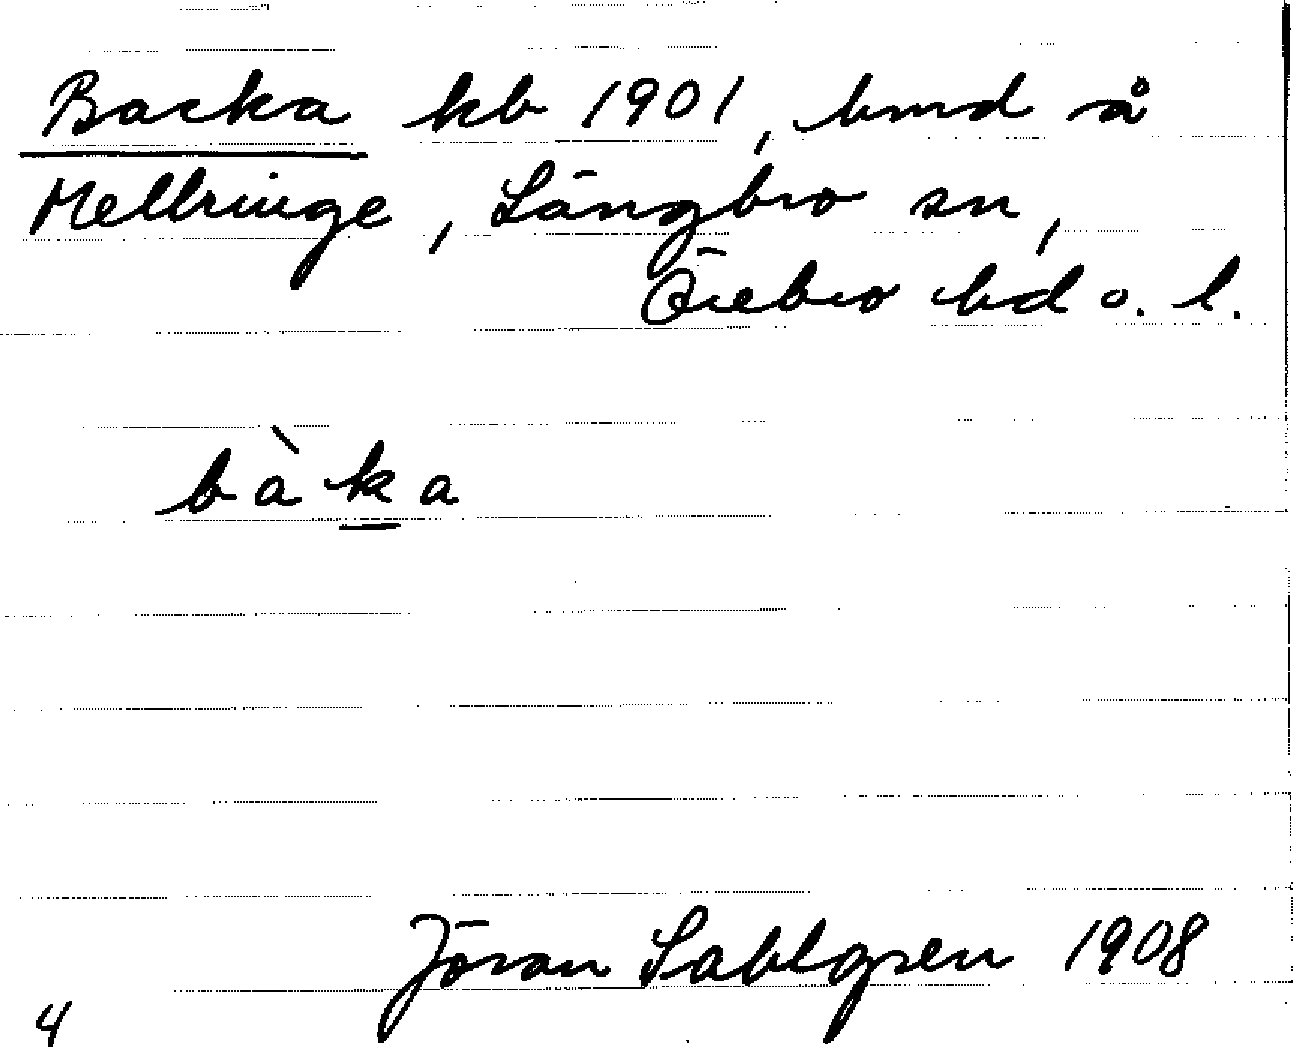 Backa kb 1901, lmd å
Mellringe, Längbro sn,
Örebro hd o. l.
bàka
Jöran Sahlgren 1908
4